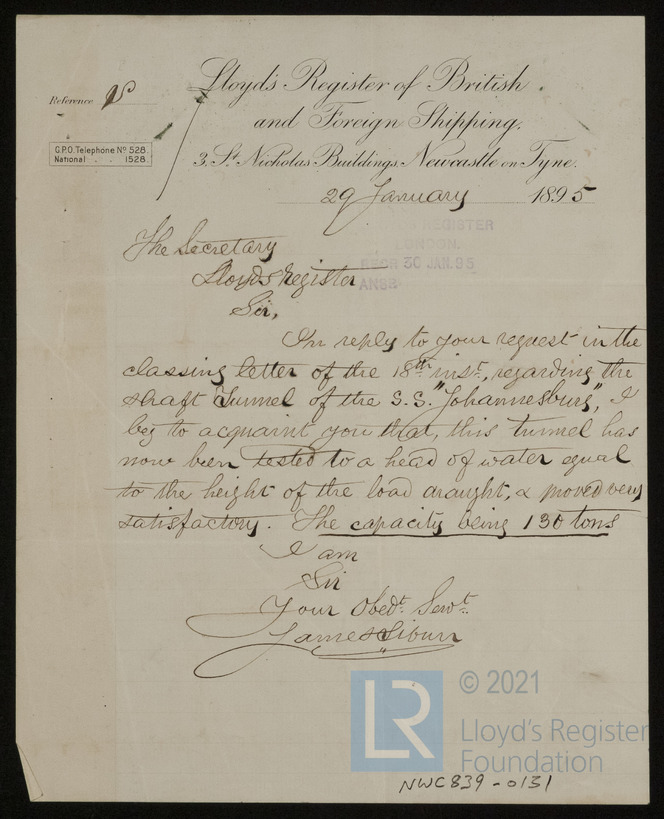 Lloyd's Register of British
and Foreign Shipping.
3, St. Nicholas Buildings, Newcastle on Tyne.
Reference
G.P.O. Telephone No 528.
National . . 1528.
29 January 1895
REGISTER
LONDON.
RECD 30 JAN. 95
ANSD
The Secretary
Lloyds Register
Sir,
In reply to your request in the
classing letter of the 18th inst., regarding the
shaft Tunnel of the S.S. "Johannesburg", I
beg to acquaint you that, this tunnel has
now been tested to a head of water equal
to the height of the load draught, & proved very
satisfactory. The capacity being 130 tons
I am
Sir
Your Obedt. Servt.
James
LR
© 2021
Lloyd's Register
Foundation
NWC839-0131